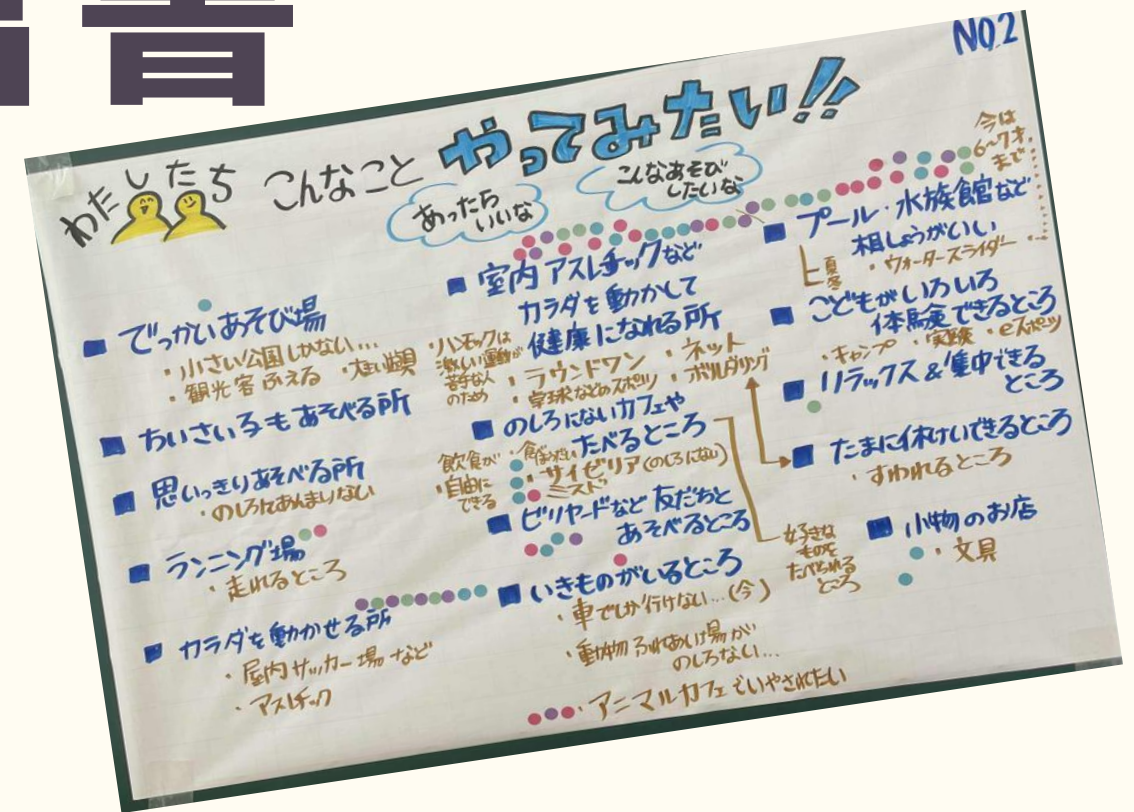 書
NO.2
わたしたち こんなこと やってみたい!!
あったら
いいな
こんなあそび
したいな
■ でっかいあそび場
・小さい公園しかない…
・観光客ふえる ・大きい遊具
■ ちいさい子もあそべる所
■ 思いっきりあそべる所
・のしろにあんまりない
■ ランニング場
・走れるところ
■ カラダを動かせる所
・屋内サッカー場 など
・アスレチック
■ 室内アスレチックなど
カラダを動かして
健康になれる所
・ハンモックは
激しい運動が
苦手な人
のため
・ラウンドワン ・ネット
・卓球などのスポーツ ・ボルダリング
■ のしろにないカフェや
たべるところ
飲食が
・自由に
できる
・サイゼリア(のしろにない)
・ミスド
■ ビリヤードなど 友だちと
あそべるところ
■ いきものがいるところ
・車でしか行けない…(今)
・動物ふれあい場が
のしろない…
・アニマルカフェでいやされたい
今は
6〜7才
まで
■ プール・水族館など
相しょうがいい
夏
冬
・ウォータースライダー
■ こどもがいろいろ
体験できるところ
・キャンプ ・実験 ・eスポーツ
■ リラックス&集中できる
ところ
■ たまに休けいできるところ
・すわれるところ
好きな
ものを
たべられる
ところ
■ 小物のお店
・文具